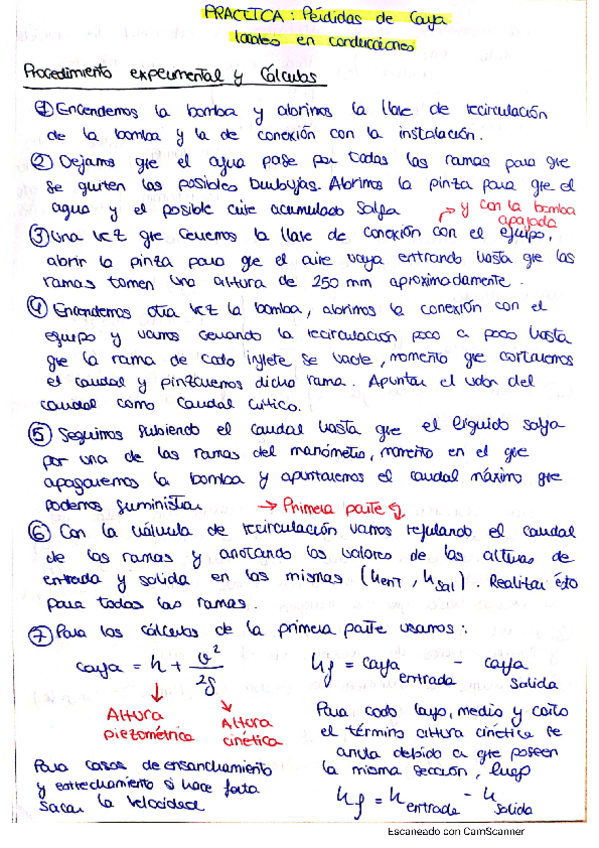 PRACTICA: Pérdidas de Carga
locales en conducciones
Procedimiento experimental y Cálculos
① Encendemos la bomba y abrimos la llave de recirculación
de la bomba y la de conexión con la instalación.
② Dejamos que el agua pase por todas las ramas para que
se quiten las posibles burbujas. Abrimos la pinza para que el
agua y el posible aire acumulado salga
→ y con la bomba
apagada
③ Una vez que cerremos la llave de conexión con el equipo,
abrir la pinza para que el aire vaya entrando hasta que las
ramas tomen una altura de 250 mm aproximadamente.
④ Encendemos otra vez la bomba, abrimos la conexión con el
equipo y vamos cerrando la recirculación poco a poco hasta
que la rama de codo inglete se vacíe, momento que cortaremos
el caudal y pinzaremos dicha rama. Apuntar el valor del
caudal como caudal crítico.
⑤ Seguimos subiendo el caudal hasta que el líquido salga
por una de las ramas del manómetro, momento en el que
apagaremos la bomba y apuntaremos el caudal máximo que
podemos suministrar
→ Primera parte
⑥ Con la válvula de recirculación vamos regulando el caudal
de las ramas y anotando los valores de las alturas de
entrada y salida en las mismas (hent, hsal). Realizar ésto
para todas las ramas.
⑦ Para los cálculos de la primera parte usamos:
carga = h + v²/2g
hf = carga entrada - carga salida
Altura
piezométrica
Altura
cinética
Para codo largo, medio y corto
el término altura cinética se
anula debido a que poseen
la misma sección, luego
hf = h entrada - h salida
Para casos de ensanchamiento
y estrechamiento si hace falta
sacar la velocidad
Escaneado con CamScanner